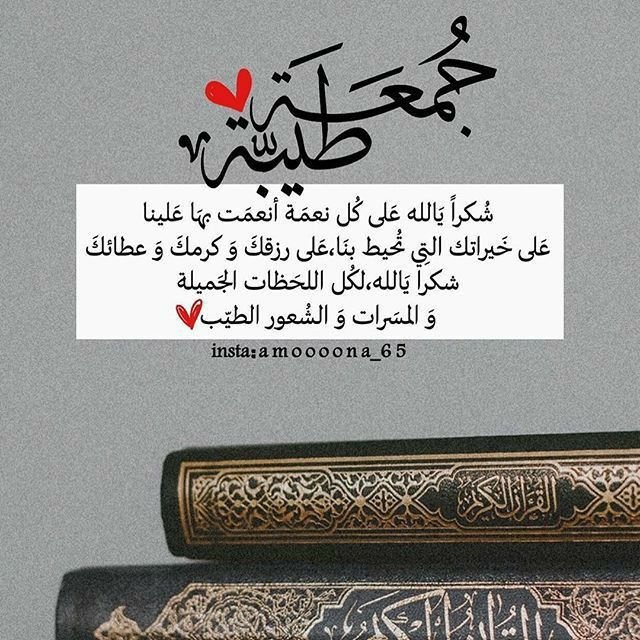 جُمعَة
طيبة
شُكراً يَالله عَلى كُل نعمَة أنعمَت بهَا عَلينا
عَلى خَيراتك التِي تُحيط بنَا،عَلى رزقكَ وَ كرمكَ وَ عطائكَ
شكرا يَالله،لكُل اللحَظات الجَميلة
وَ المسَرات وَ الشُعور الطيّب
insta:amoooona_65
القرآن الكريم
القرآن الكريم